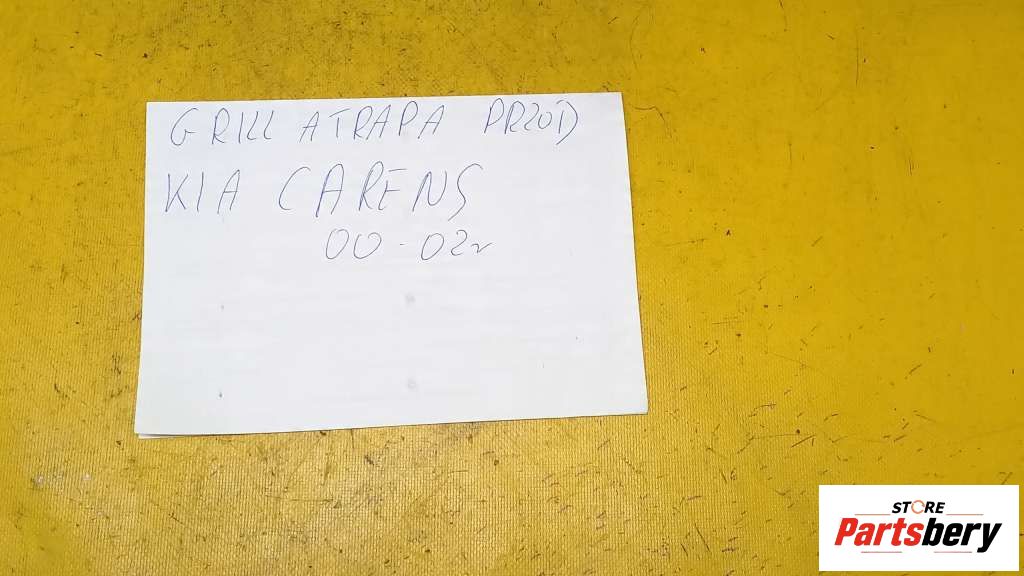 GRILL ATRAPA PRZÓD
KIA CARENS
00-02r
STORE
Partsbery